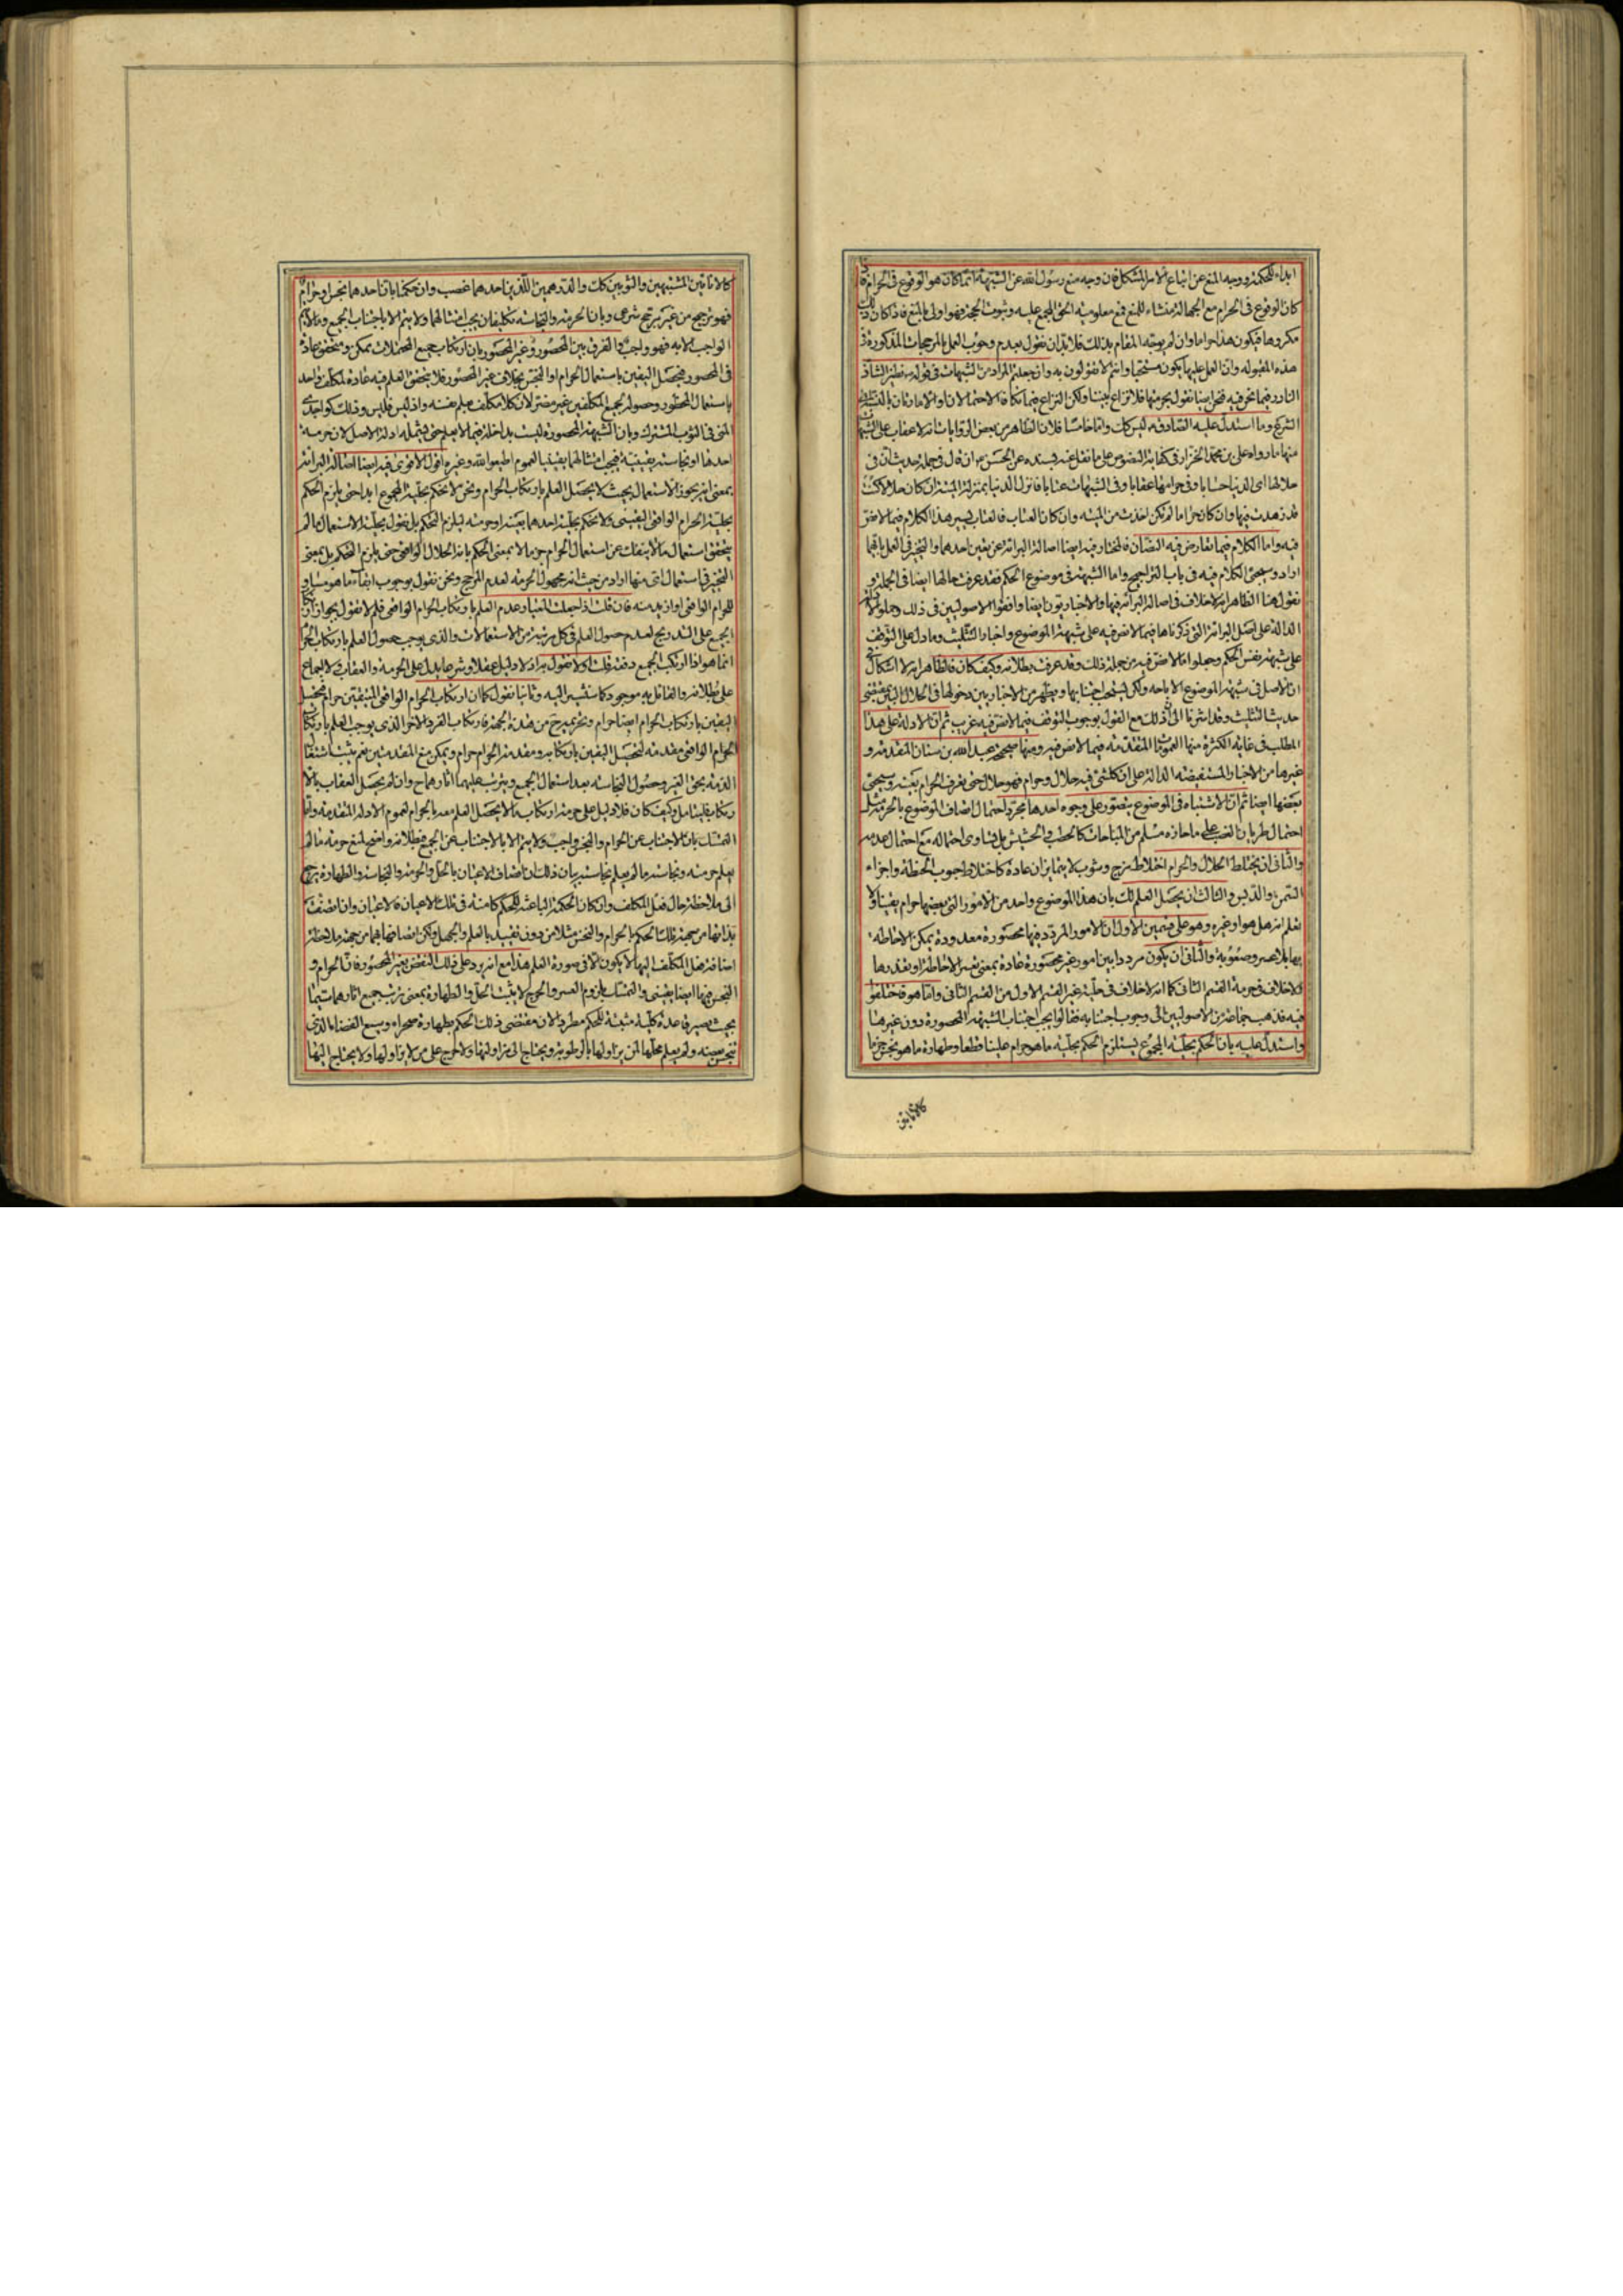 ابداء للحكمة ووجه المنع عن اتباع الامر المشكل فان وجه منع رسول الله عن الشبهة انما كان هو الوقوع فى الحرام فا
كان الوقوع فى الحرام مع الجهالة منشاء للمنع فمع معلومية الحق المجمع عليه وثبوت الحجة فهو اولى بالمنع فاذا كان ذلك
مكروها فيكون هذا حراما وان لم يوجه المقام بذلك فلا بد ان نقول بعدم وجوب العمل بالمرجحات المذكورة فى
هذه المقبولة وان العمل عليها يكون مستحبا وانتم لا تقولون به وان جعلتم المراد من الشبهات فى قوله نظير الشاذ
النادر فيما نحن فيه فنحن ايضا نقول بحرمتها فلا نزاع بيننا ولكن النزاع فيما تكافأ الاحتمالان او الامارتان بالنسبة الى
الترجيح وما استدل عليه الصادق به ليس كك واما خامسا فلان الظاهر من بعض الروايات انه لا عقاب على الشبهات
منها ما رواه على بن محمد الخزاز فى كفاية النصوص على ما نقل عنه بسنده عن الحسن انه قال فى جملة حديث ان فى
حلالها اى الدنيا حسابا وفى حرامها عقابا وفى الشبهات عتابا فانزل الدنيا بمنزلة الميتة ان كان حلالا كنت
قد زهدت فيها وان كان حراما لم تكن اخذت من الميتة وان كان العتاب فالعتاب يسير هذا الكلام فيما لا نص
فيه واما الكلام فيما تعارض فيه النصان فالمختار فيه ايضا اصالة البرائة عن تعيين احدهما والتخيير فى العمل بايهما
اراد وسيجئ الكلام فيه فى باب التراجيح واما الشبهة فى موضوع الحكم فقد عرفت حالها ايضا فى الجملة و
نقول هنا الظاهر انه لا خلاف فى اصالة البرائة فيها والاخباريون ايضا وافقوا الاصوليين فى ذلك وحملوا الادلة
الدالة على اصل البرائة التى ذكرناها فيما لا نص فيه على شبهة الموضوع واخبار التثليث وما دل على التوقف
على شبهة نفس الحكم وجعلوا ما لا نص فيه من جملة ذلك وقد عرفت بطلانه وكيف كان فالظاهر انه لا اشكال فى
ان الاصل فى شبهة الموضوع الاباحة ولكن يستحب اجتنابها ويظهر من الاخباريين دخولها فى الحلال البين بمقتضى
حديث التثليث وقد اشرنا الى ان ذلك مع القول بوجوب التوقف فيما لا نص فيه غريب ثم ان الادلة على هذا
المطلب فى غاية الكثرة منها العمومات المتقدمة فيما لا نص فيه ومنها صحيحة عبد الله بن سنان المتقدمة و
غيرها من الاخبار المستفيضة الدالة على ان كل شئ فيه حلال وحرام فهو حلال حتى تعرف الحرام بعينه وسيجئ
بعضها ايضا ثم ان الاشتباه فى الموضوع يتصور على وجوه احدها مجرد احتمال اتصاف الموضوع بالحرمة مثل
احتمال طريان الغصب على ما حازه مسلم من المباحات كالحطب والحشيش بل تساوى احتماله مع احتمال عدمه
والثانى ان يختلط الحلال والحرام اختلاط مزج وشوب لا يتمايزان عادة كاختلاط حبوب الحنطة واجزاء
السمن والدبس والثالث ان يحصل العلم لك بان هذا الموضوع واحد من الامور التى بعضها حرام يقينا ولا
تعلم انه هل هو او غيره وهو على قسمين الاول ان الامور المردد فيها محصورة معدودة يمكن الاحاطة
بها بلا عسر وصعوبة والثانى ان يكون مرددا بين امور غير محصورة عادة بمعنى تعسر الاحاطة او تعذرها
ولا خلاف فى حرمة القسم الثانى كما انه لا خلاف فى حلية غير القسم الاول من القسم الثانى واما هو فاختلفوا
فيه فذهب جماعة من الاصوليين الى وجوب اجتنابه فقالوا يجب اجتناب الشبهة المحصورة دون غيرها
واستدل عليه بان الحكم بحلية المجموع يستلزم الحكم بحلية ما هو حرام علينا قطعا وطهارة ما هو نجس جزما
كالانائين
كالانائين المشتبهين والثوبين كك والدرهمين اللذين احدهما غصب وان حكمنا بان احدهما نجس او حرام
فهو ترجيح من غير مرجح شرعى وبان الحرمة والنجاسة تكليفان يجب امتثالهما ولا يتم الا باجتناب الجميع وما لا يتم
الواجب الا به فهو واجب والفرق بين المحصور وغير المحصور بان ارتكاب جميع المحتملات ممكن ومتحقق عادة
فى المحصور فيحصل اليقين باستعمال الحرام او النجس بخلاف غير المحصور فلا يتحقق العلم فيه عادة لمكلف واحد
باستعمال المحظور وحصوله لجميع المكلفين غير مضر لان كلا مكلف بعلم نفسه واذ ليس فليس وذلك كواجدى
المنى فى الثوب المشترك وبان الشبهة المحصورة ليست بداخلة فيما لا يعلم حتى يشمله ادلة الاصل لان حرمة
احدها او نجاسته يقينية فيجب امتثالها يقينا لعموم اطيعوا الله وغيره اقول الاقوى فيه ايضا اصالة البرائة
بمعنى انه يجوز الاستعمال بحيث لا يحصل العلم بارتكاب الحرام ونحن لا نحكم بحلية المجموع ابدا حتى يلزم الحكم
بحلية الحرام الواقعى اليقينى ولا نحكم بحلية احدهما بعينه او حرمته ليلزم التحكم بل نقول بحلية الاستعمال ما لم
يتحقق استعمال ما لا ينفك عن استعمال الحرام جزما لا بمعنى الحكم بانه الحلال الواقعى حتى يلزم التحكم بل بمعنى
التخيير فى استعمال اى منها اراد من حيث انه مجهول الحرمة لعدم المرجح ونحن نقول بوجوب ابقاء ما هو مساو
للحرام الواقعى او ازيد منه فان قلت اذا جعلت المعيار عدم العلم بارتكاب الحرام الواقعى فلم لا تقول بجواز ارتكاب
الجميع على التدريج لعدم حصول العلم فى كل مرتبة من الاستعمالات والذى يوجب حصول العلم بارتكاب الحرام
انما هو اذا ارتكب الجميع دفعة قلت اولا نقول به اذ لا دليل عقلا وشرعا يدل على الحرمة والعقاب ولا اجماع
على بطلانه والقائل به موجود كما سنشير اليه وثانيا نقول كما ان ارتكاب الحرام الواقعى المتيقن حرام تحصيل
اليقين بارتكاب الحرام ايضا حرام ونحن نمنع من هذه الجهة فارتكاب الفرد الاخر الذى يوجب العلم بارتكاب
الحرام الواقعى مقدمة لتحصيل اليقين بارتكابه ومقدمة الحرام حرام ويمكن منع المقدمتين نعم يثبت اشتغال
الذمة بحق الغير وحصول النجاسة بعد استعمال الجميع ويترتب عليهما اثارهما ح وان لم يحصل العقاب بالا
رتكاب فليتامل وكيف كان فلا دليل على حرمة ارتكاب ما لا يحصل العلم معه بالحرام لعموم الادلة المتقدمة واما
التمسك بان الاجتناب عن الحرام والنجس واجب ولا يتم الا بالاجتناب عن الجميع فبطلانه واضح لمنع حرمة ما لم
يعلم حرمته ونجاسة ما لم يعلم نجاسته بيان ذلك ان اتصاف الاعيان بالحل والحرمة والنجاسة والطهارة يرجع
الى ملاحظة حال فعل المكلف وان كان الحكمة الباعثة للحكم كامنة فى تلك الاعيان فالاعيان وان اتصفت
بذاتها من جهة تلك الحكم بالحرام والنجس مثلا من دون تقييد بالعلم والجهل ولكن اتصافها بهما من جهة ملاحظة
اضافة فعل المكلف اليها لا يكون الا فى صورة العلم هذا مع انه يرد على ذلك النقض بغير المحصور فان الحرام و
النجس فيها ايضا يقينى والتمسك بلزوم العسر والحرج لا يثبت الحل والطهارة بمعنى ترتب جميع اثارهما سيما
بحيث يصير قاعدة كلية مثبتة للحكم مطردا لان مقتضى ذلك الحكم بطهارة صحراء وسيع الفضا الذى
تنجس بعينه ولم يعلم محلها لمن يزاولها بالرطوبة ويحتاج الى مزاولتها ولا حرج على من لا يزاولها ولا يحتاج اليها